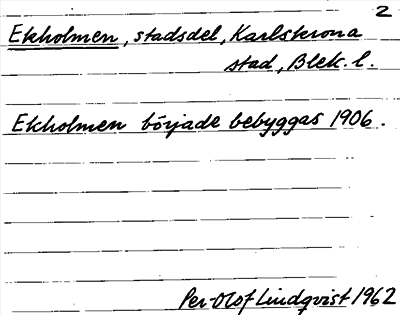 2
Ekholmen, stadsdel, Karlskrona
stad, Blek. l.
Ekholmen började bebyggas 1906.
Per-Olof Lindqvist 1962